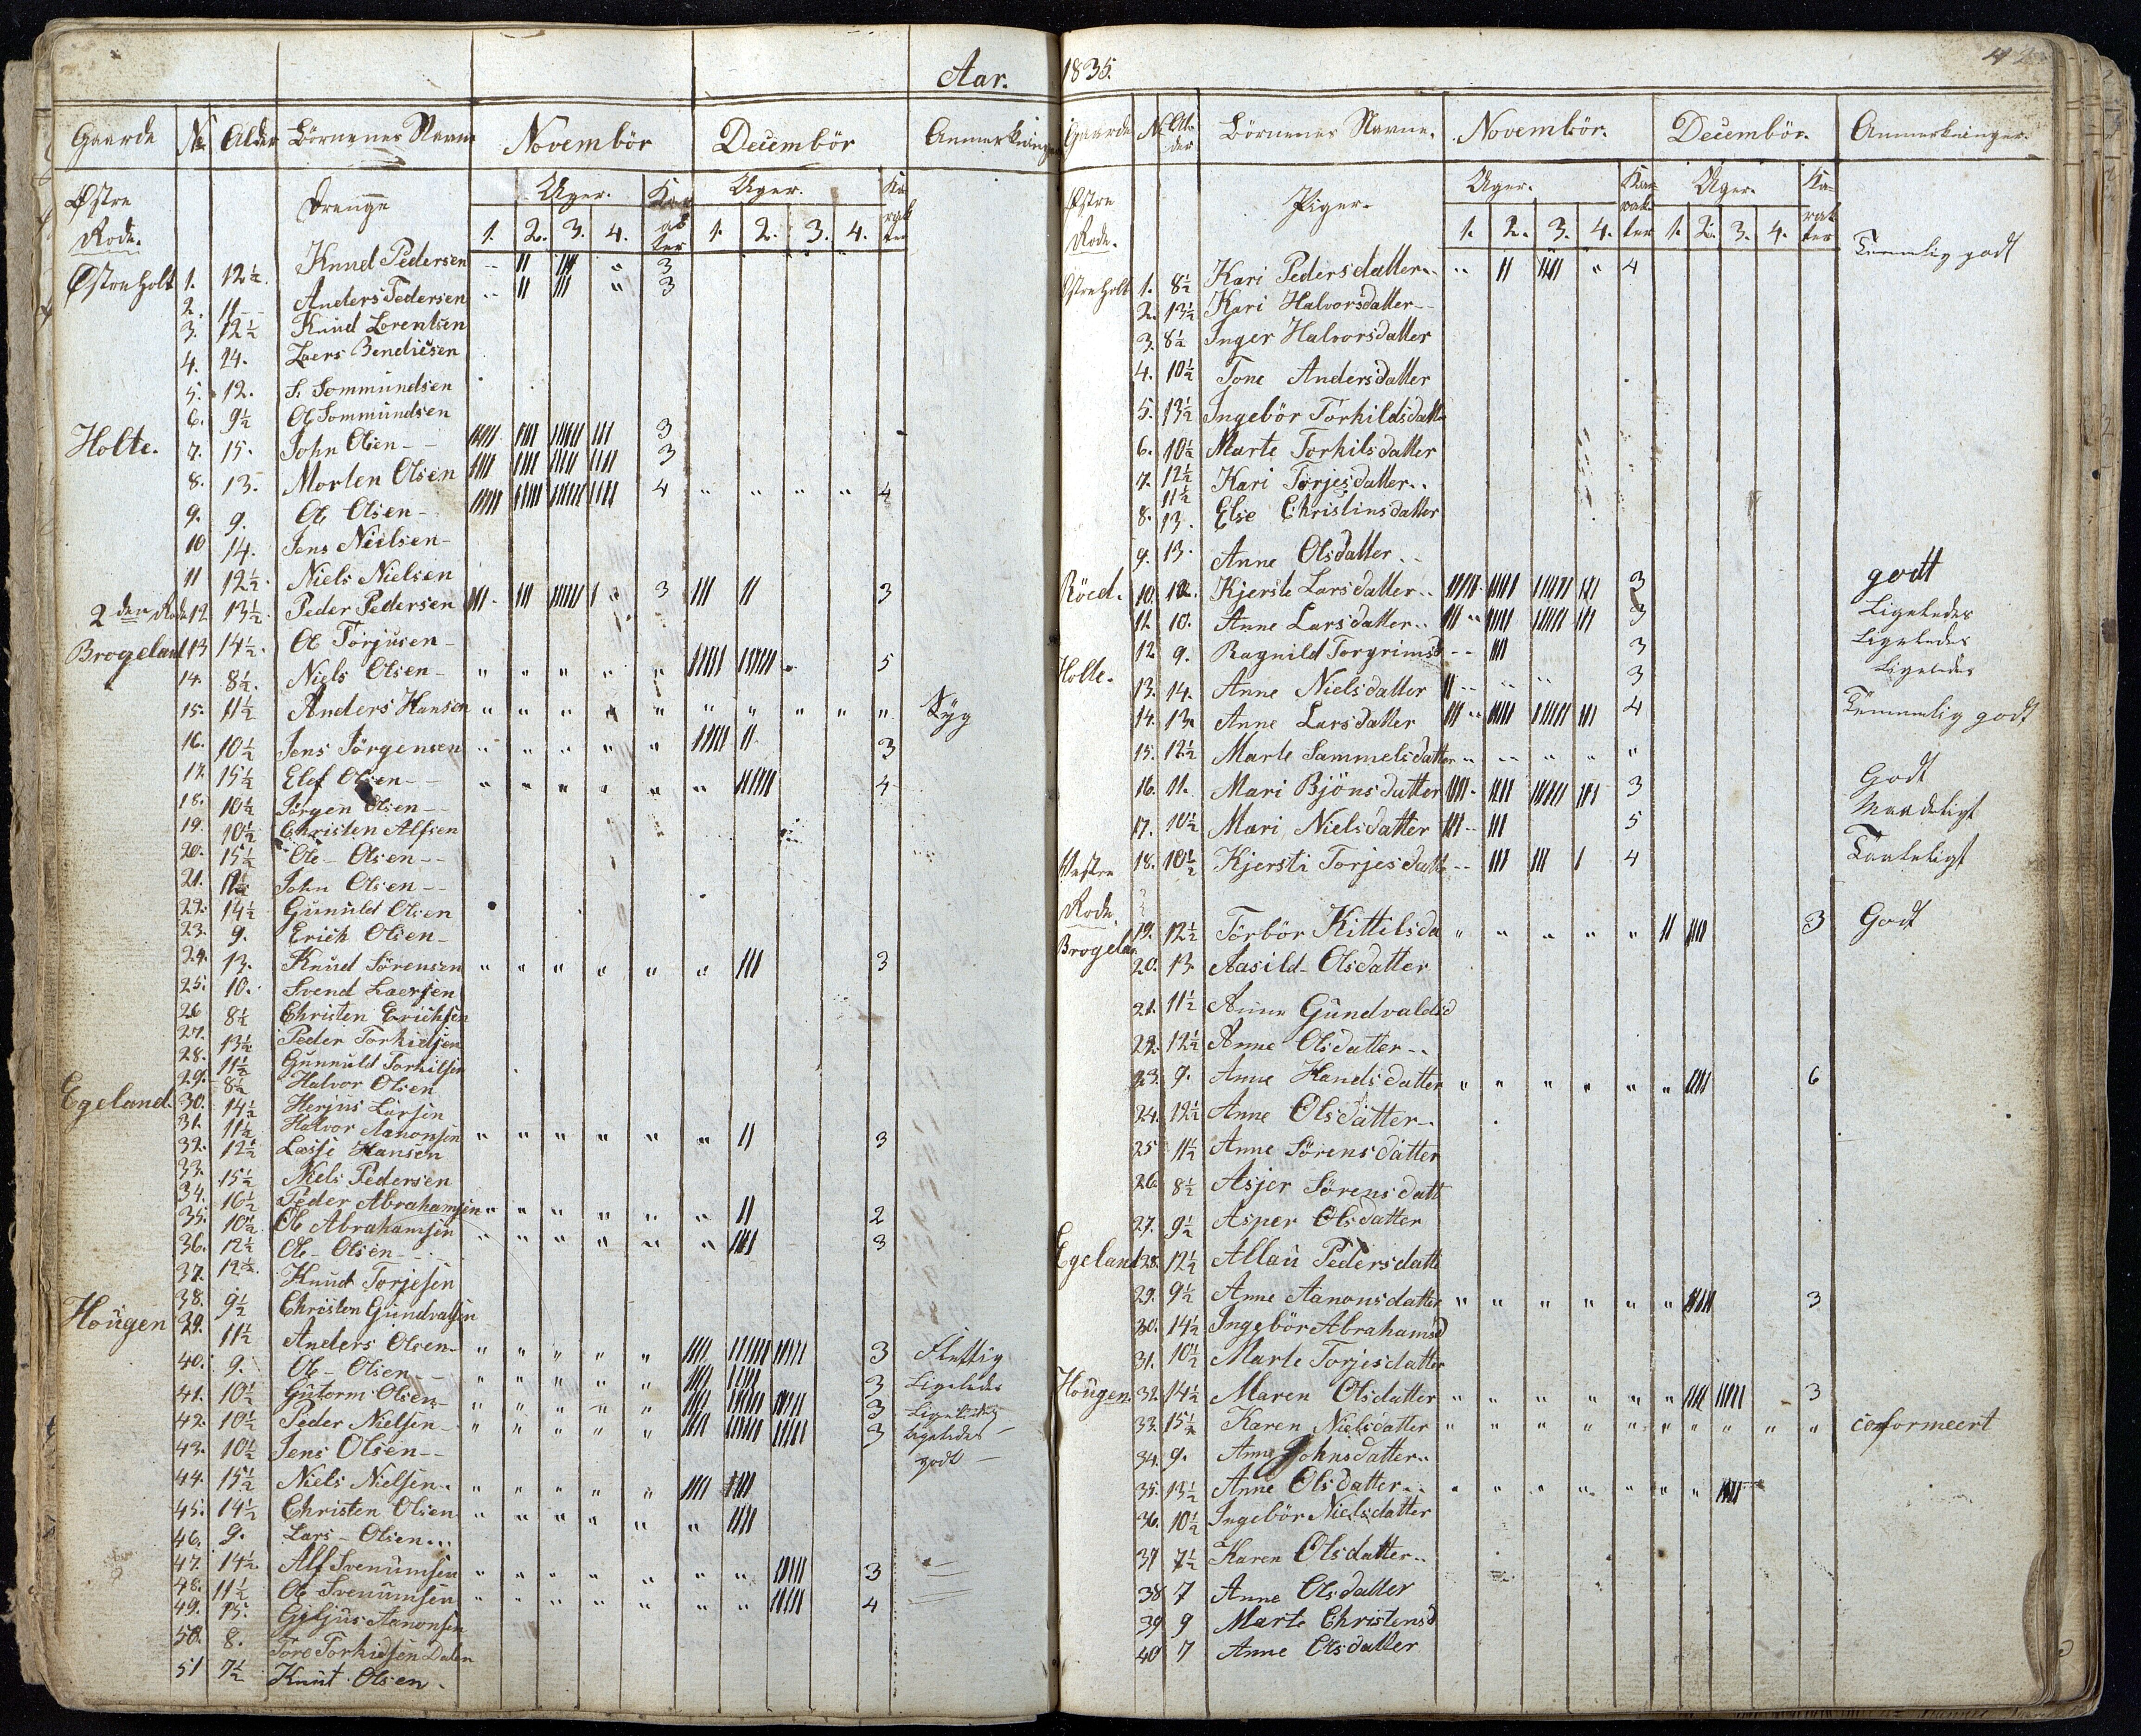 Aar.
Gaarde No Alder Börnenes Navne Novembör Decembör Anmerkninger
Östre Rode. Drenge Uger. Karakter Uger. Karakter
1. 2. 3. 4. 1. 2. 3. 4.
Östreholt 1. 12½. Knud Pedersen " II III " 3
2. 11 Anders Pedersen " II III " 3
3. 12½ Knud Lorentsen
4. 14. Laers Bendicsen
5. 12. S. Sommundsen
6. 9½ Ol Sommundsen
Holte. 7. 15. John Olsen 3
8. 13. Morten Olsen 3
9. 9. Ol Olsen 4 " " " " 4
10 14. Jens Nielsen
11 12½. Niels Nielsen
2den Rode 12 13½. Peder Pedersen 3 III II 3
Brogeland 13 14½. Ol Torjusen
14. 8½. Niels Olsen " " " " " 5
15. 11½ Anders Hansen " " " " " " " " " " Syg
16. 10½ Jens Jörgensen " " " " " 3
17. 15½ Elef Olsen " " " " " " 4
18. 10½ Jörgen Olsen
19. 10½ Christen Alfsen
20. 15½ Ole Olsen
21. John Olsen
22. 14½ Gunuld Olsen
23. 9. Erich Olsen
24. 13. Knud Sörensen " " " " " " III 3
25. 10. Svend Laersen
26 8½ Christen Erichsen
27. 13½ Peder Torkildsen
28. 11½ Gunnuld Torkilsen
29. 8½ Halvor Olsen
Egeland. 30. 14½ Herjus Larsen
31. 11½ Halvor Aanonsen " " " " " " II 3
32. 12½ Lassi Hansen
33. 15½ Niels Pedersen
34. 16½ Peder Abrahamsen " " " " " " II 2
35. 10½ Ol Abrahamsen " " " " " " IIII 3
36. 12½ Ole Olsen
37. 12½. Knud Torjesen
38. 9½ Christen Gundvalsen
Hougen 39. 11½ Anders Olsen " " " " " 3 Flettig
40. 9. Ole Olsen " " " " " 3 Ligeledes
41. 10½ Gutorm Olsen " " " " " 3 Ligeledes
42. 10½ Peder Nielsen " " " " " 3 Ligeledes
43. 10½ Jens Olsen godt
44. 15½ Niels Nielsen " " " " " IIII IIII
45. 14½ Christen Olsen " " " " " " IIII
46. 9. Lars Olsen
47. 14½ Alf Svenumsen " " " " " " " IIIII 3
48. 11½ Ol Svenumsen " " " " " " " IIIII 4
49. 15. Aanonsen
50. 8. Tore Torkildsen Dalen
51 7½ Knut Olsen
1835. 42
Gaarde No Alder Börnenes Navne. Novembör. Decembör. Anmerkninger.
Östre Rode. Piger. Uger. Karakter Uger. Karakter
1. 2. 3. 4. 1. 2. 3. 4.
Östreholt 1. 8½ Kari Pedersdatter " II IIII " 4 Temmelig godt
2. 13½ Kari Halvorsdatter
3. 8½ Inger Halvorsdatter
4. 10½ Tone Andersdatter
5. 13½ Ingebör Torkildsdatter
6. 10½ Marte Torkilsdatter
7. 12½ Kari Torjesdatter
11½
8. 13. Else Christinsdatter
9. 13. Anne Olsdatter
Röed. 10. 12. Kjerste Larsdatter 3 godt
11 10. Anne Larsdatter 3 Ligeledes
12 9. Ragnild Torgrimsd 3 Ligeledes
Holte. 13. 14. Anne Nielsdatter 3 Ligeledes
14. 13. Anne Larsdatter 4 Temmelig godt
15. 12½ Marte Sammelsdatter " " " " "
16. 11. Mari Bjönsdatter 3 Godt
17. 10½ Mari Nielsdatter 5 Maadeligt
Vestre Rode. 18. 10½ Kjersti Torjesdatt III III I 4 Taaleligt
Brogeland 19. 12½ Törbör Kittilsda " " " " " II IIII 3 Godt
20. 13 Aasild Olsdatter
21. 11½ Anne Gundvaldsd
22. 12½ Anne Olsdatter
23. 9. Anne Handsdatter " " " " " " IIII 6
24. 12½ Anne Olsdatter
25 11½ Anne Sörensdatter
26 8½ Asjer Sörensdatt
27. 9½ Asper Olsdatter
Egeland 28. 12½ Allau Pedersdatt
29. 9½ Anne Aanonsdatter " " " " " " IIIII 3
30. 14½ Ingebör Abrahamsd
31. 10½ Marte Torjesdatter
Hougen. 32. 14½ Maren Olsdatter " " " " " " IIII IIIII 3
33. 15½ Karen Nielsdatter " " " " " " " " " " conformeert
34. 9. Anne Johnsdatter
35. 13½ Anne Olsdatter " " " " " " " IIII
36. 10½ Ingebör Nielsdatter
37 7½ Karen Olsdatter
38 7 Anne Olsdatter
39 9 Marte Christensd
40 7 Anne Olsdatter